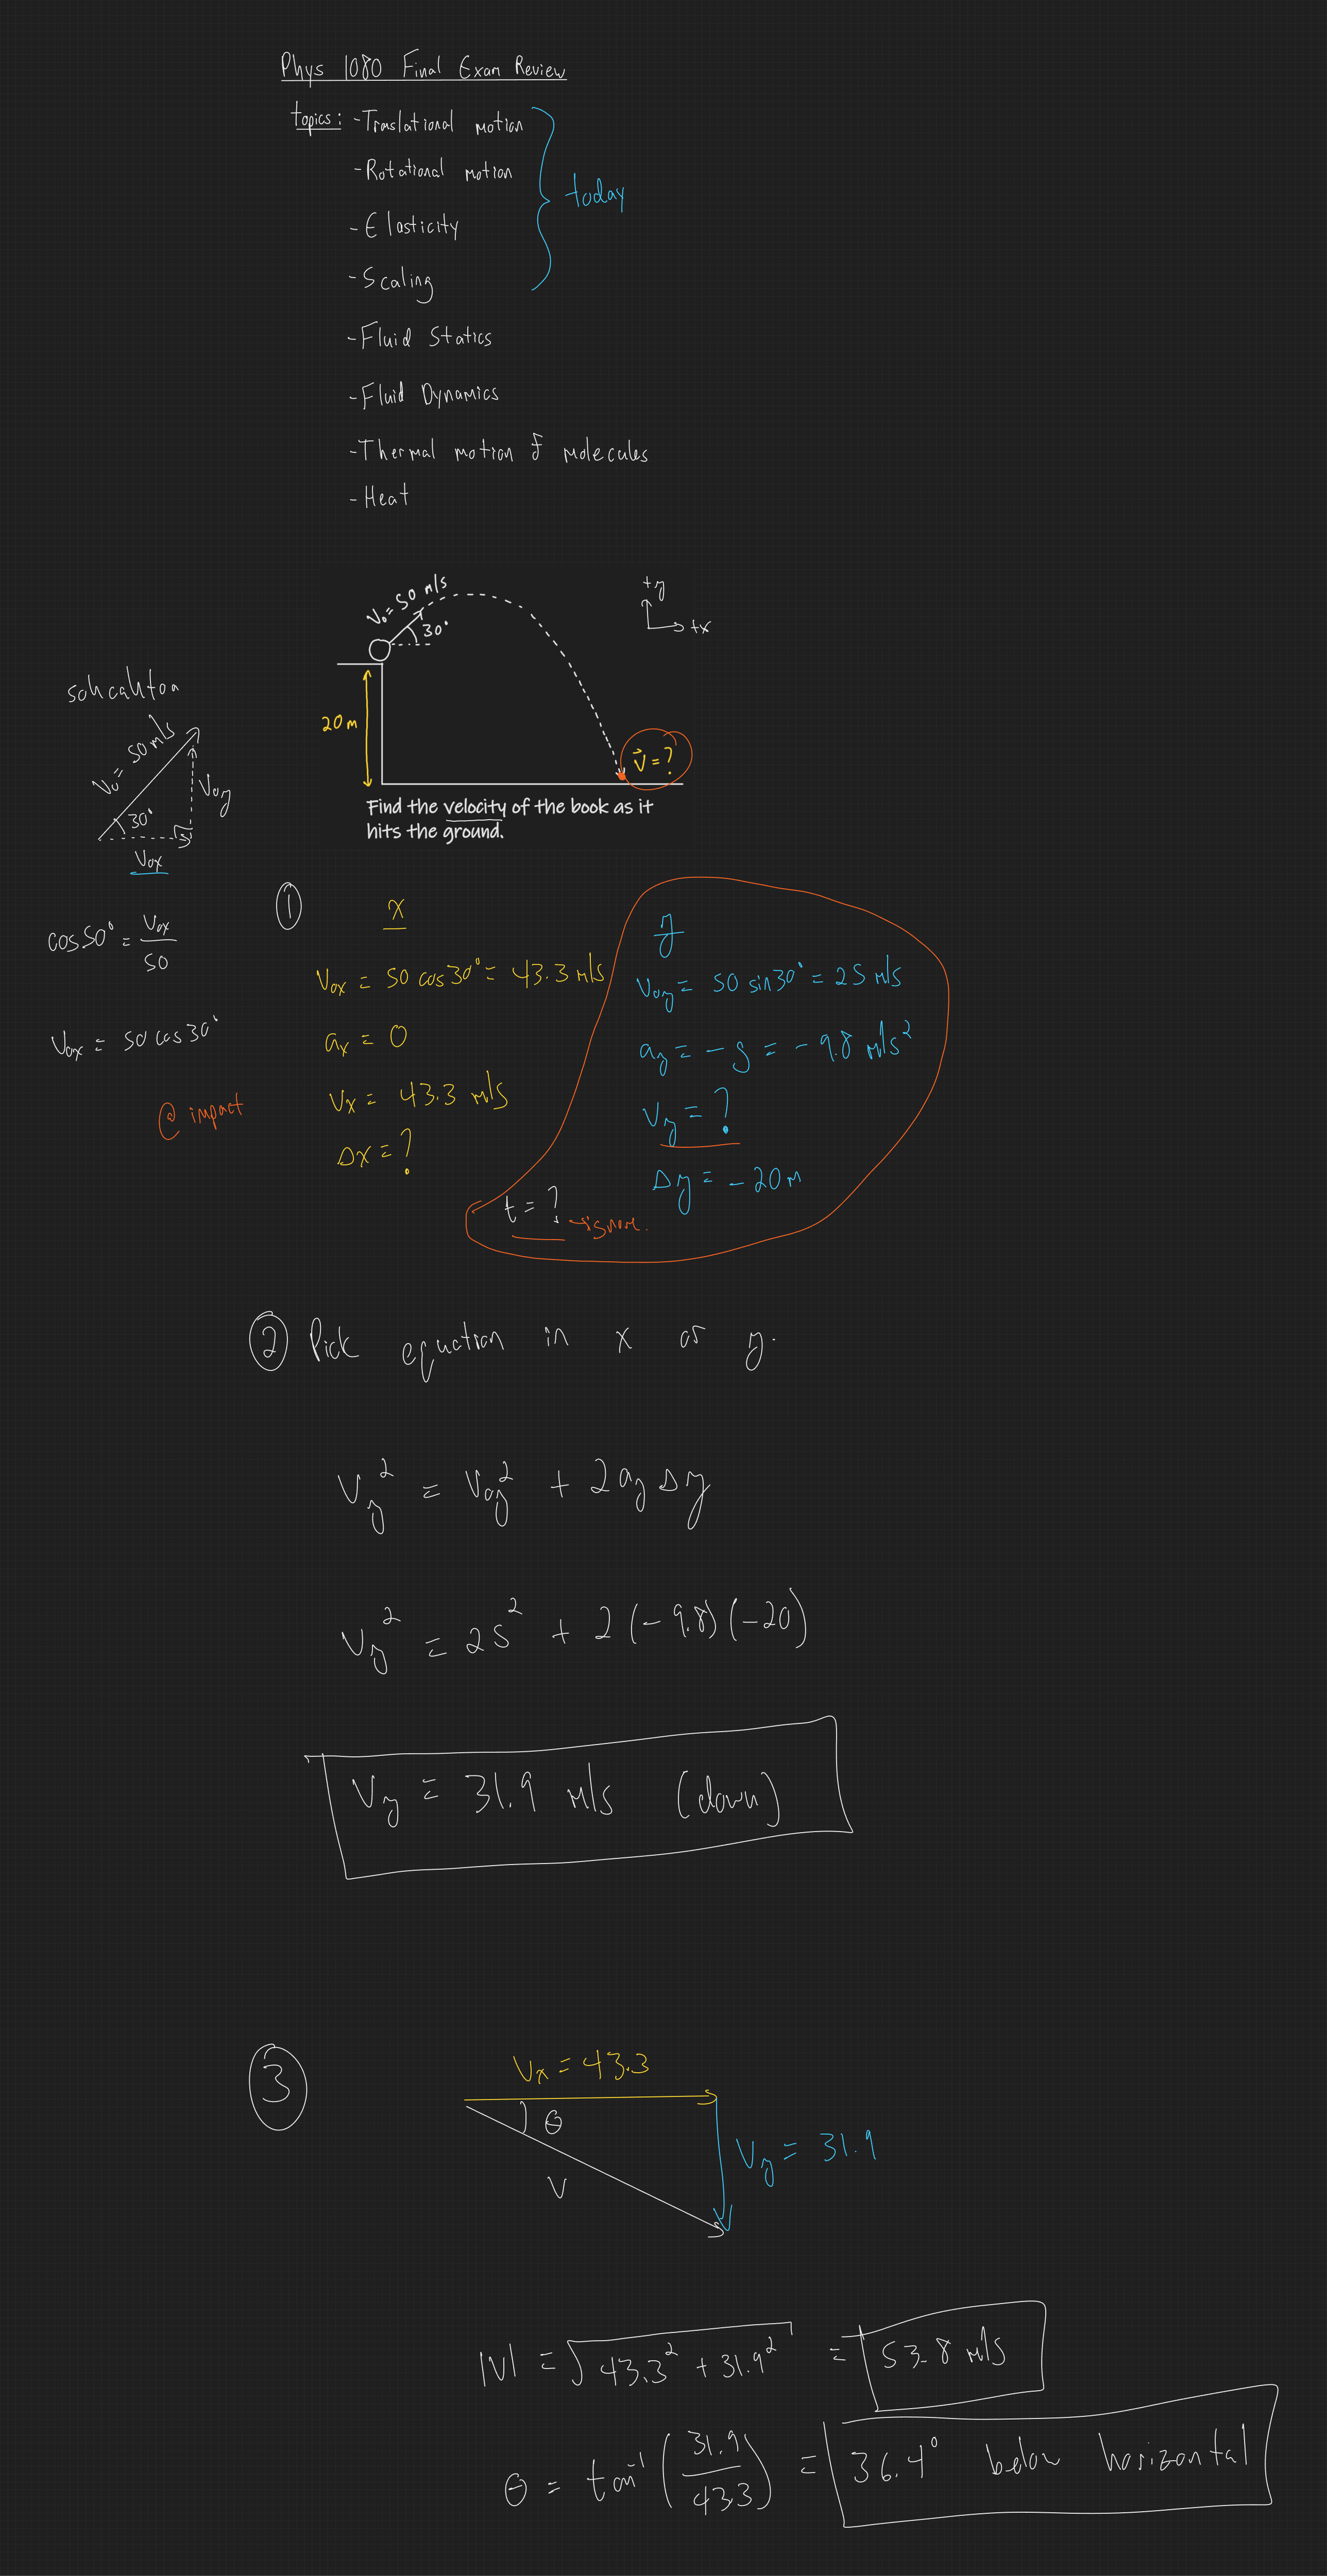 Phys 1080 Final Exam Review
topics: -Traslational motion
-Rotational motion
today
-Elasticity
-Scaling
-Fluid Statics
-Fluid Dynamics
-Thermal motion of molecules
-Heat
V₀ = 50 m/s
30°
+y
+x
20m
v⃗ = ?
Find the velocity of the book as it
hits the ground.
sohcahtoa
V₀ = 50 m/s
V₀y
30°
V₀x
cos50° = V₀x/50
V₀x = 50 cos30°
①
x
V₀x = 50 cos30° = 43.3 m/s
aₓ = 0
@ impact
Vₓ = 43.3 m/s
Δx = ?
y
V₀y = 50 sin30° = 25 m/s
ay = -g = -9.8 m/s²
Vy = ?
Δy = -20m
t = ? → ignore.
② Pick equation in x or y.
Vy² = V₀y² + 2ayΔy
Vy² = 25² + 2(-9.8)(-20)
Vy = 31.9 m/s (down)
③
Vₓ = 43.3
θ
Vy = 31.9
V
|V| = √43.3² + 31.9² = 53.8 m/s
θ = tan⁻¹(31.9/43.3) = 36.4° below horizontal